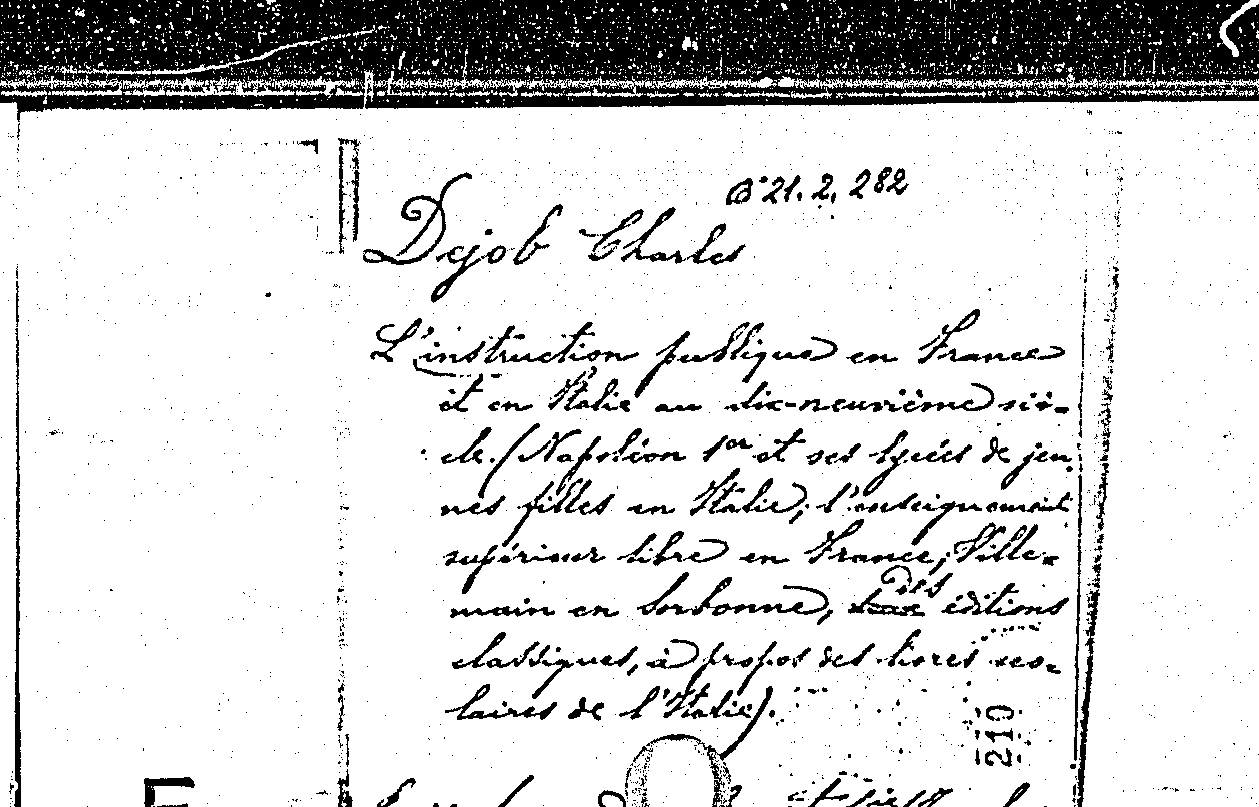 B° 21. 2. 282
Dejob Charles
L'instruction publique en France
et en Italie au dix-neuvième siè-
cle. (Napoléon 1er et ses lycées de jeu-
nes filles en Italie; l'enseignement
supérieur libre en France; Ville-
main en Sorbonne, des éditions
classiques, à propos des livres sco-
laires de l'Italie).
210